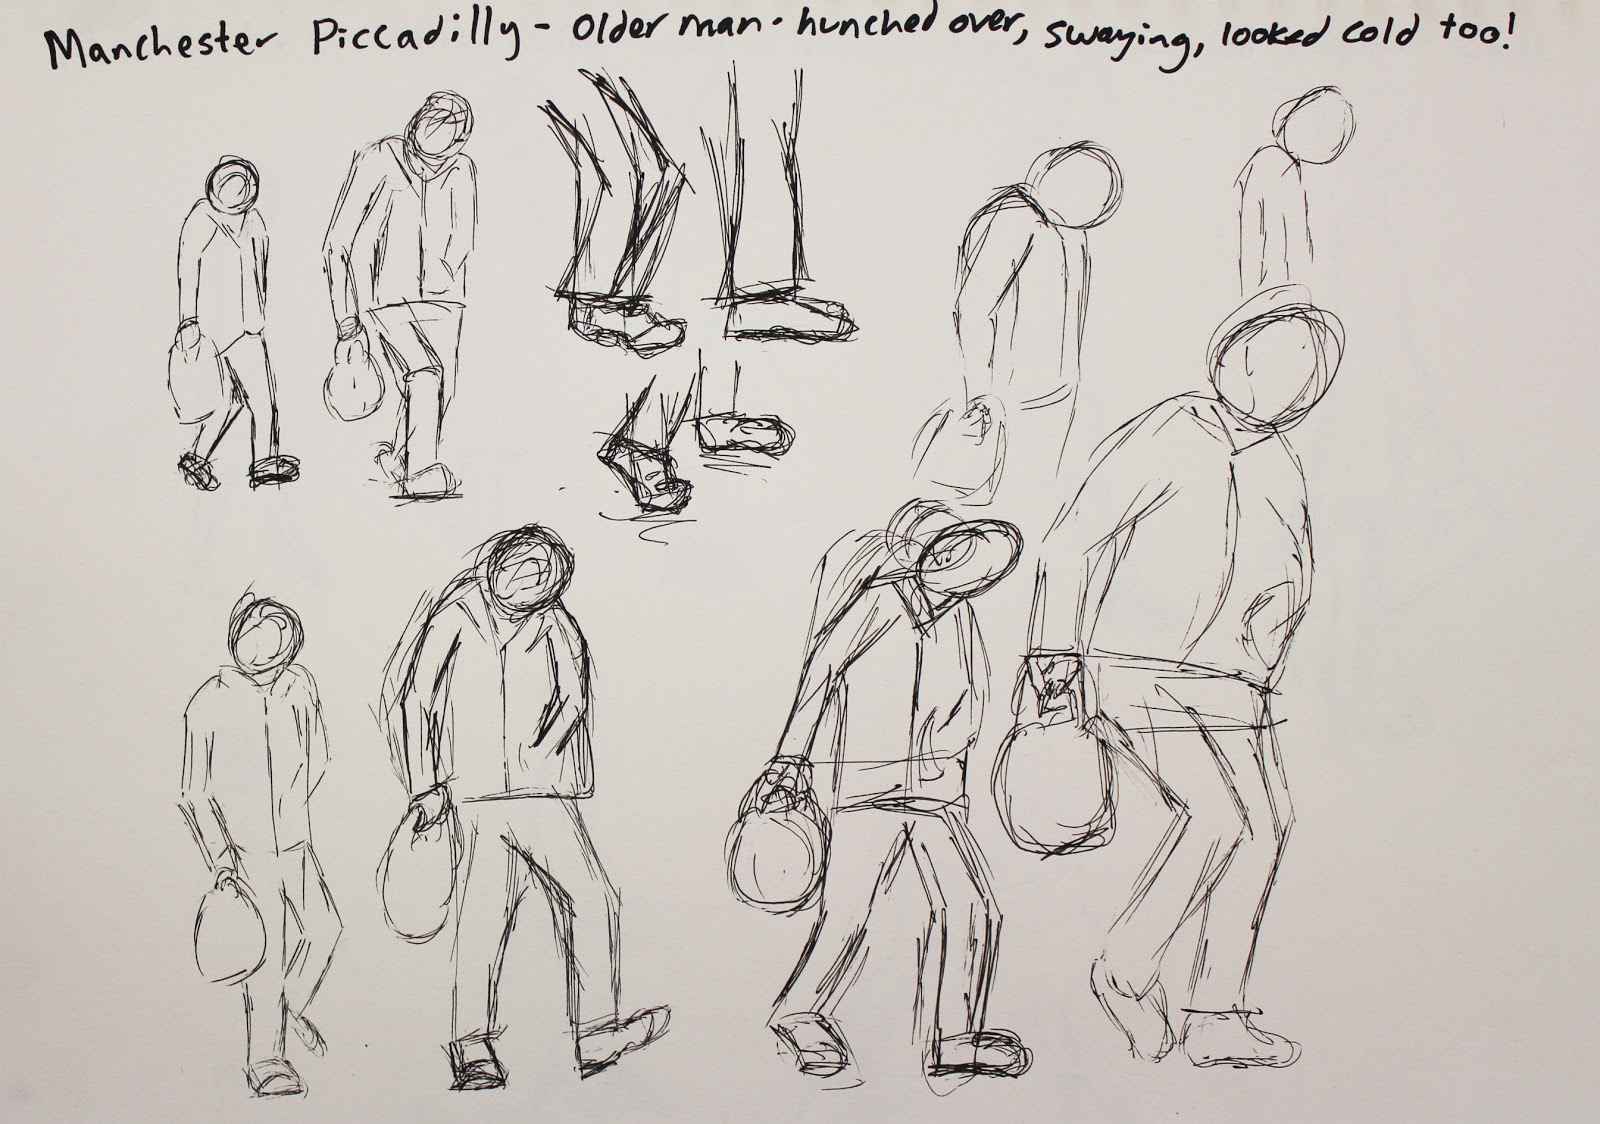 Manchester Piccadilly - Older man - hunched over, swaying, looked cold too!